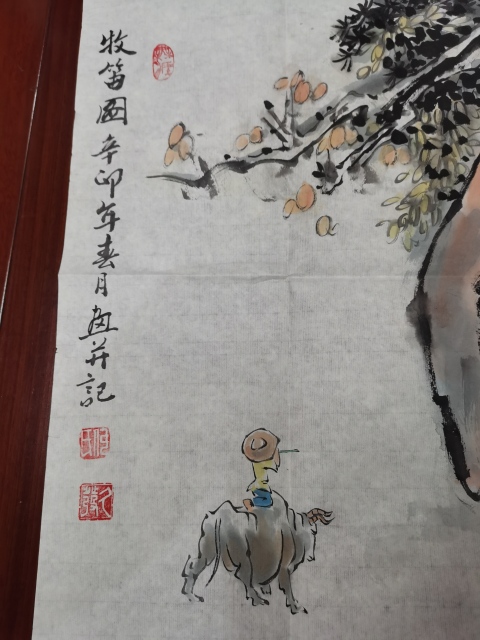 牧笛圖辛卯年春月画并記